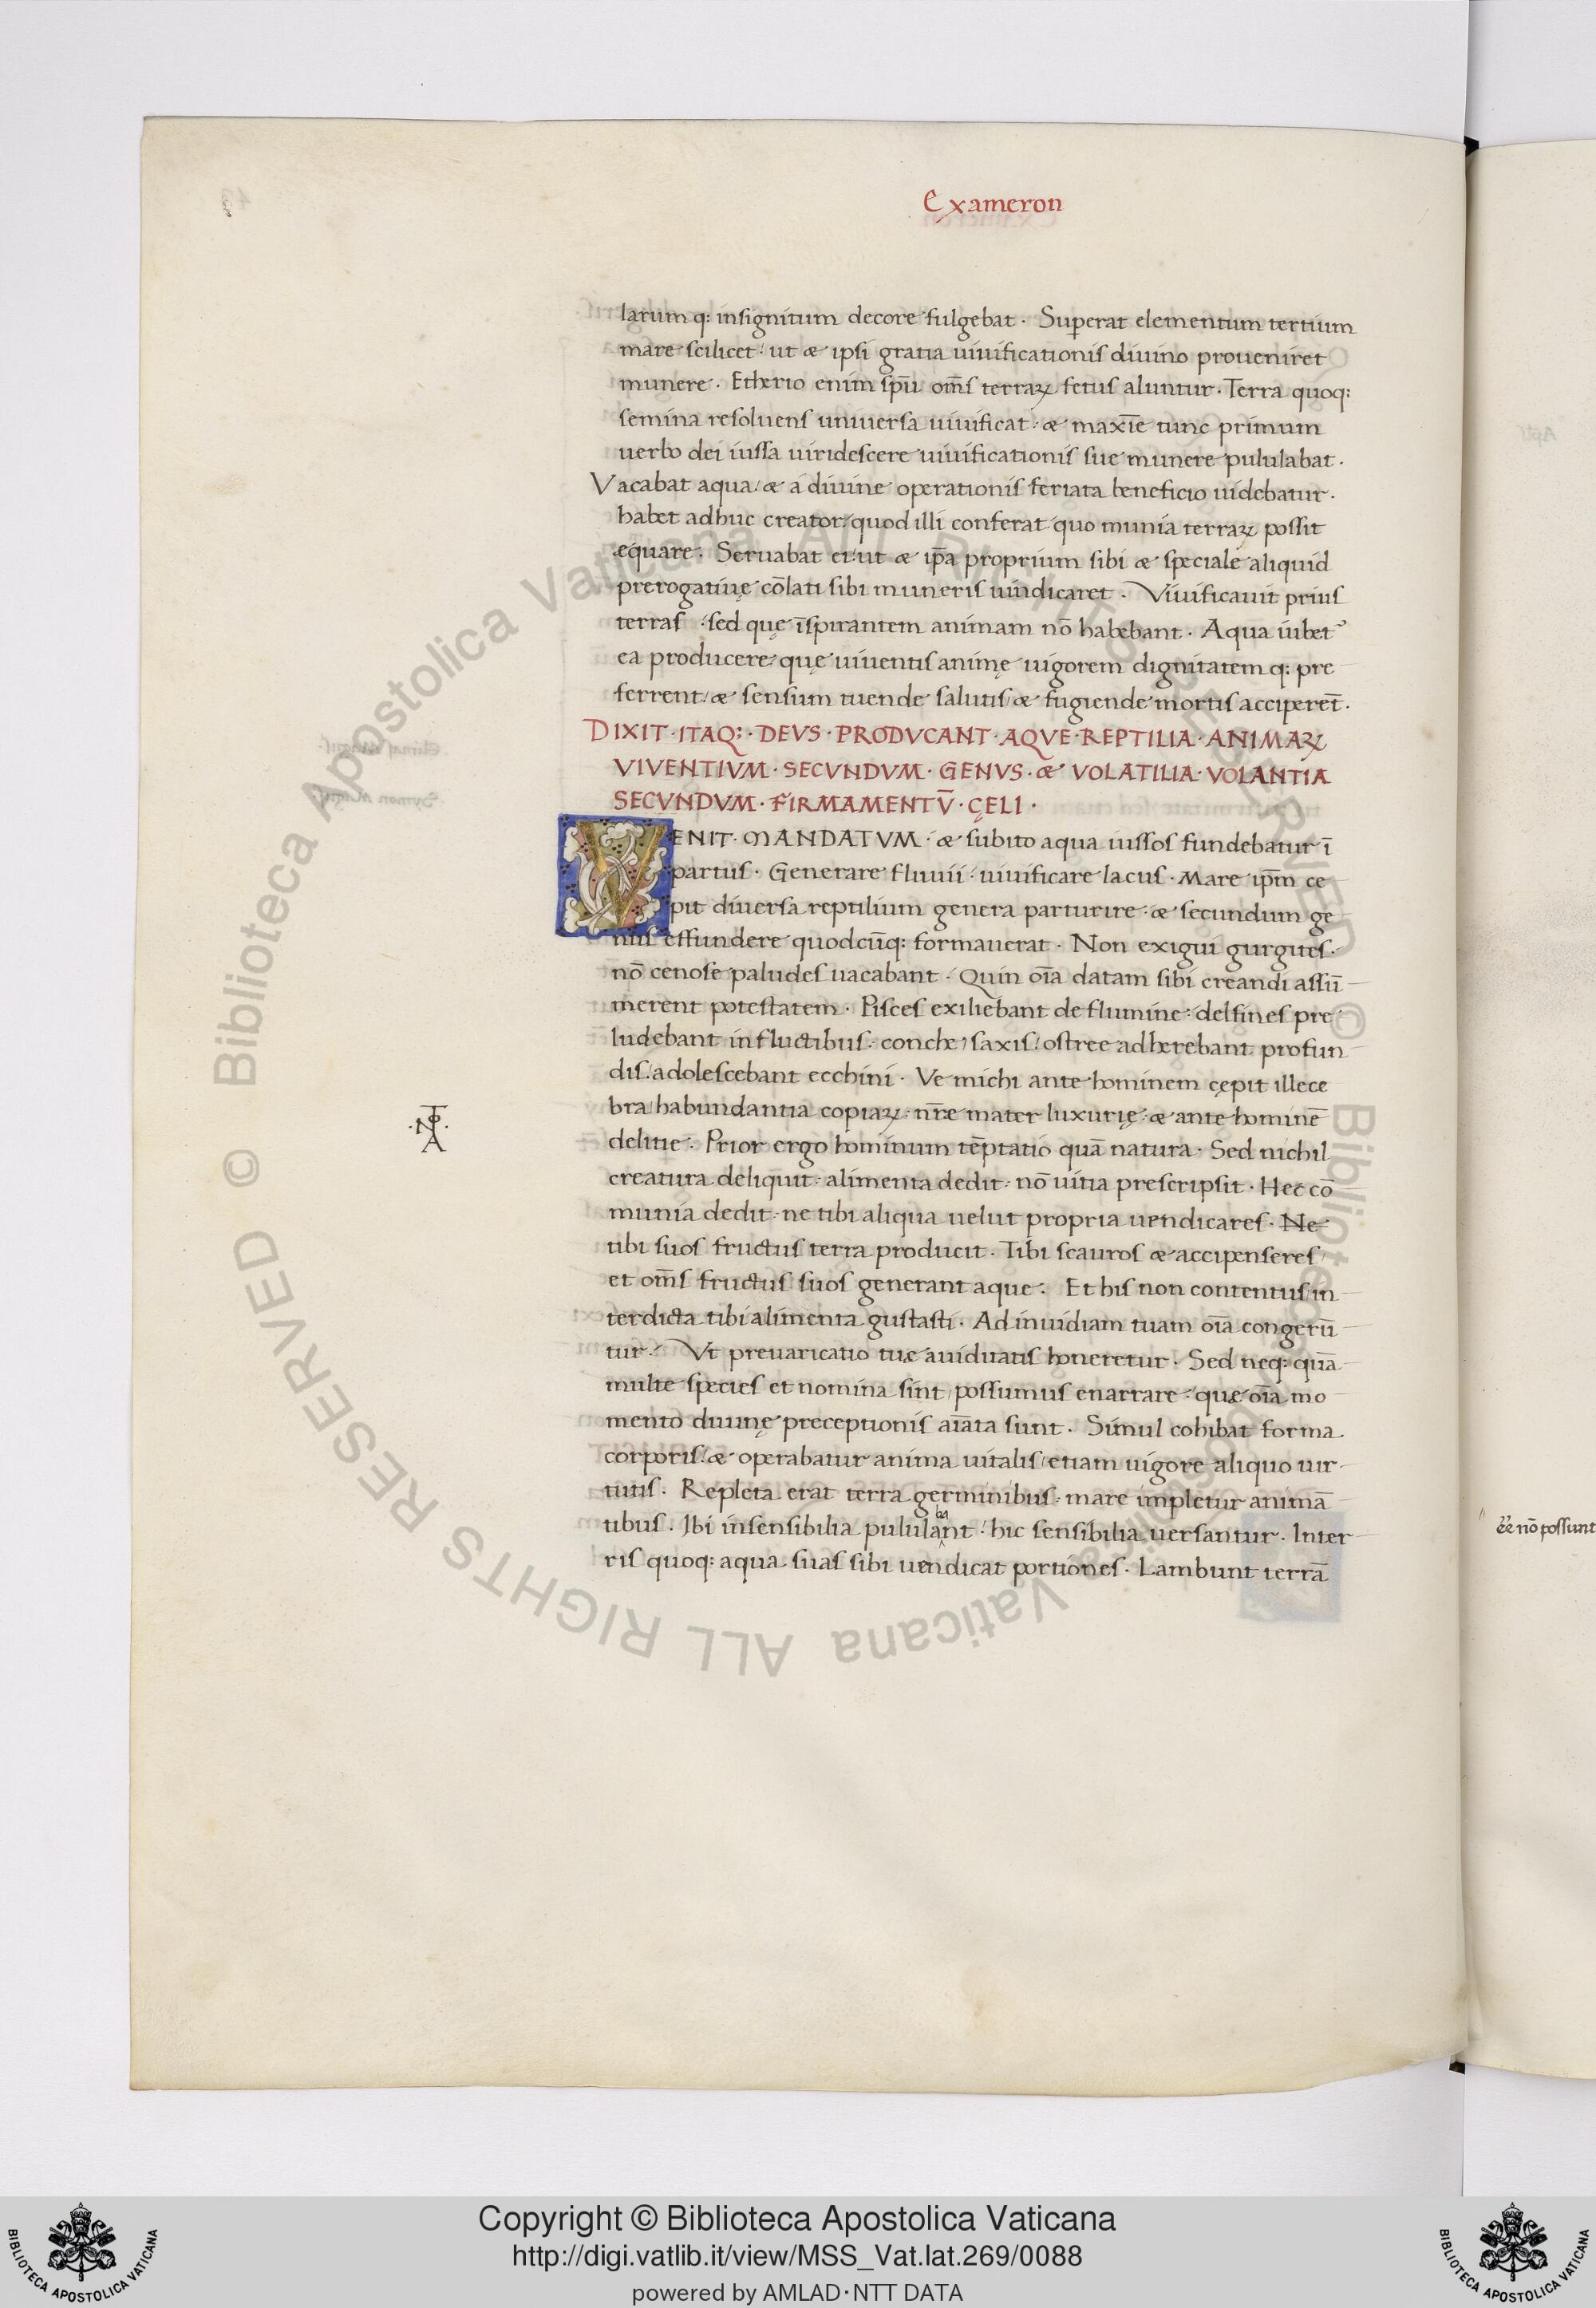 Exameron
larum q: insignitum decore fulgebat · Superat elementum tertium
mare scilicet : ut & ipsi gratia uiuificationis diuino proueniret
munere · Etherio enim spū om̄s terraꝝ fetus aluntur · Terra quoq:
semina resoluens uniuersa uiuificat : & maxīe tunc primum
uerbo dei iussa uiridescere uiuificationis sue munere pululabat ·
Vacabat aqua / & a diuine operationis feriata beneficio uidebatur ·
habet adhuc creator / quod illi conferat quo munia terraꝝ possit
equare · Seruabat ei : ut & ip̄a proprium sibi & speciale aliquid
prerogatiuę cōlati sibi muneris uindicaret · Viuificauit prius
terras : sed quę īspirantem animam nō habebant · Aqua iubet᷒
ea producere : quę uiuentis animę uigorem dignitatem q: pre
ferrent / & sensum tuende salutis / & fugiende mortis acciperēt ·
DIXIT · ITAQ: · DEVS · PRODVCANT · AQVE · REPTILIA · ANIMAꝝ
VIVENTIVM · SECVNDVM · GENVS · & VOLATILIA · VOLANTIA
SECVNDVM · FIRMAMENTV̄ · CĘLI ·
VENIT · MANDATVM · & subito aqua iussos fundebatur ī
partus · Generare fluuii : uiuificare lacus · Mare ip̄m ce
pit diuersa reptilium genera parturire : & secundum ge
nus effundere quodcūq: formauerat · Non exigui gurgites ·
nō cenose paludes uacabant · Quin oīa datam sibi creandi assū
merent potestatem · Pisces exiliebant de flumine : delfines pre
ludebant in fluctibus : conche / saxis / ostree adherebant profun
dis / adolescebant ecchini · Ve michi ante hominem cępit illece
bra / habundantia copiaꝝ : nr̄e mater luxurię : & ante hominē
delitie · Prior ergo hominum tēptatio quā natura · Sed nichil
creatura deliquit : alimenta dedit : nō uitia prescripsit · Hec cō
munia dedit : ne tibi aliqua uelut propria uendicares · Ne
tibi suos fructus terra producit · Tibi scauros & accipenseres /
et om̄s fructus suos generant aque · Et his non contentus / in
terdicta tibi alimenta gustasti · Ad inuidiam tuam oīa congerū
tur · Vt preuaricatio tuæ auiditatis honeretur · Sed neq: quā
multe species et nomina sint / possumus enarrare : quæ oīa mo
mento diuinę preceptionis aīata sunt · Simul cohibat forma
corporis / & operabatur anima uitalis / etiam uigore aliquo uir
tutis · Repleta erat terra germinibus : mare impletur animā
tibus · Ibi insensibilia pululant : hic sensibilia uersantur · In ter
ba
ris quoq: aqua suas sibi uendicat portiones · Lambunt terrā
ēē nō possunt
Copyright © Biblioteca Apostolica Vaticana
http://digi.vatlib.it/view/MSS_Vat.lat.269/0088
powered by AMLAD · NTT DATA
BIBLIOTECA APOSTOLICA VATICANA
BIBLIOTECA APOSTOLICA VATICANA
© Biblioteca Apostolica Vaticana ALL RIGHTS RESERVED © Biblioteca Apostolica Vaticana ALL RIGHTS RESERVED